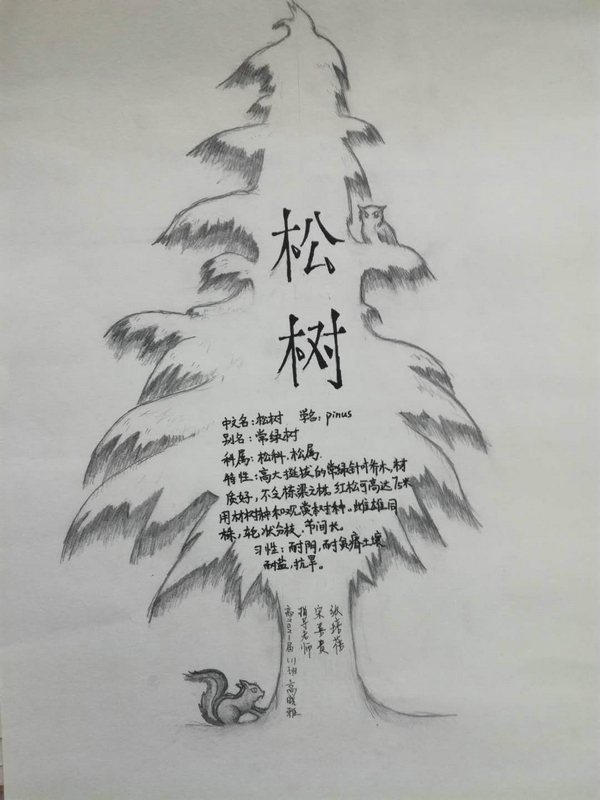 松
树
中文名：松树 学名：pinus
别名：常绿树
科属：松科，松属.
特性：高大挺拔的常绿针叶乔木，材
质好，不乏栋梁之林。红松可高达75米
用材树种和观赏树种。雌雄同
株，轮状分枝，节间长。
习性：耐阴，耐贫瘠土壤
耐盐，抗旱。
张培蓓
宋喜贵
指导老师
高2021届11班高晓雅